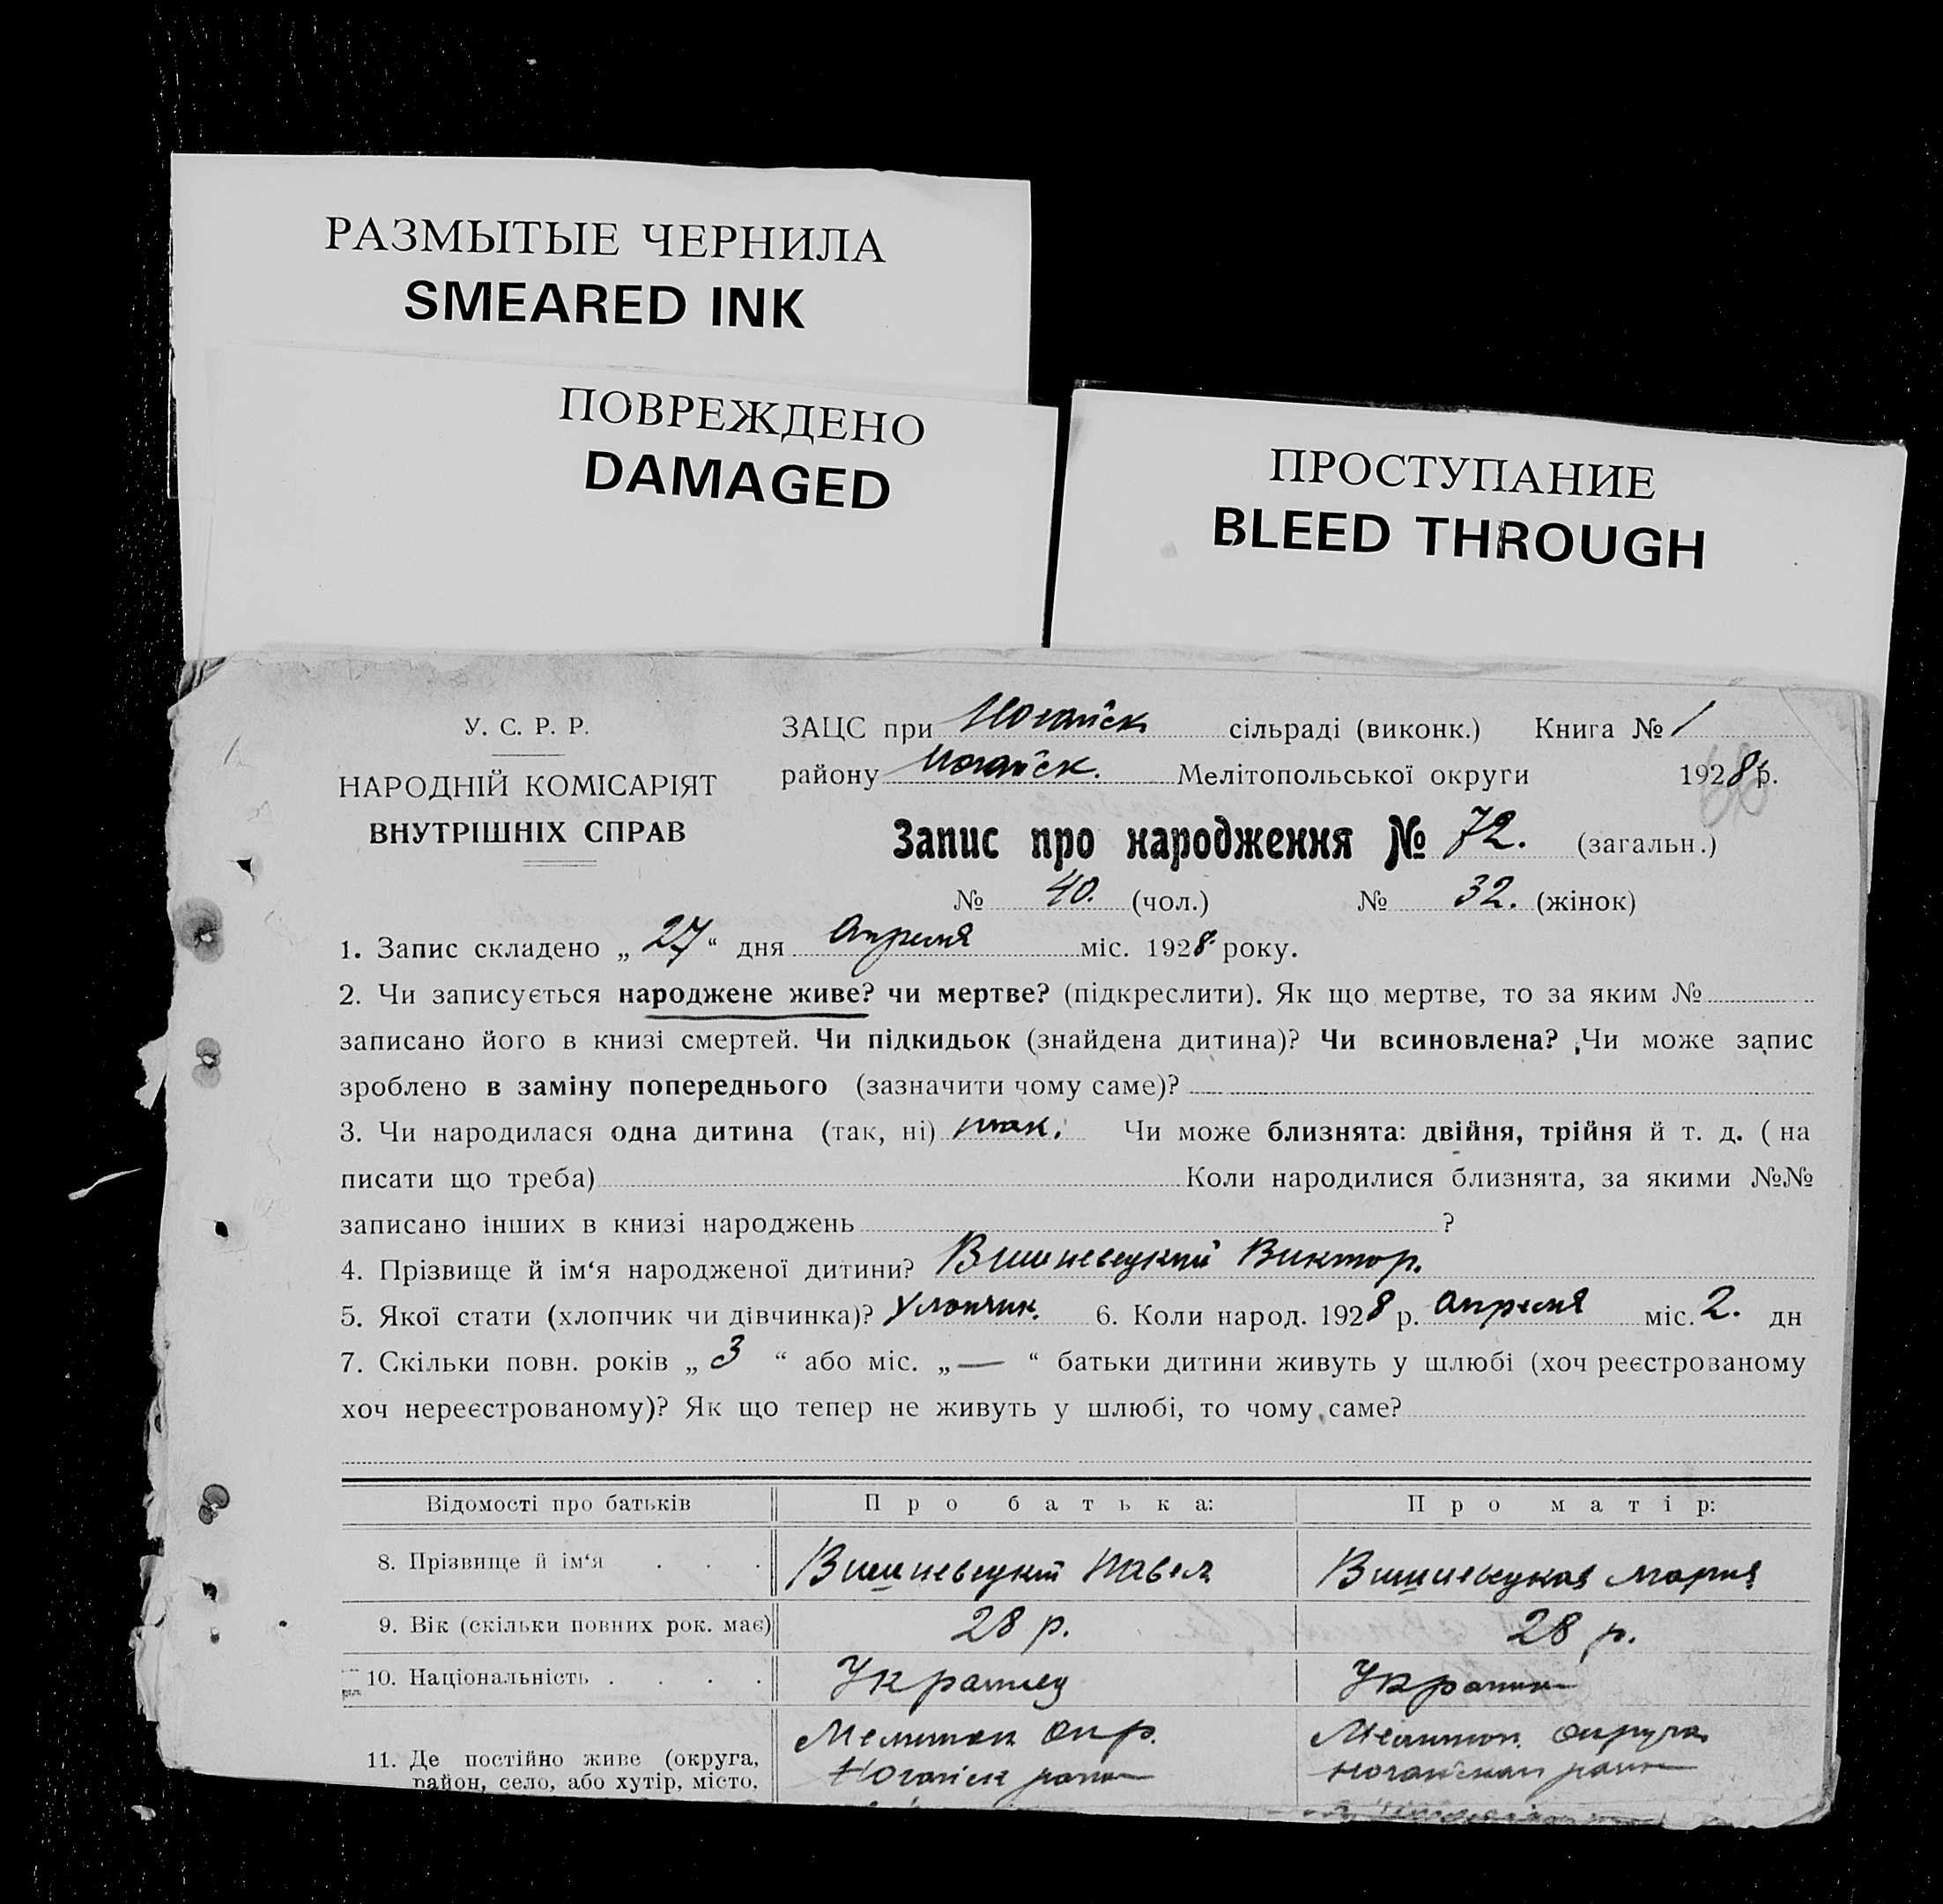 РАЗМЫТЫЕ ЧЕРНИЛА
SMEARED INK
ПОВРЕЖДЕНО
DAMAGED
ПРОСТУПАНИЕ
BLEED THROUGH
У. С. Р. Р.
НАРОДНІЙ КОМІСАРІЯТ
ВНУТРІШНІХ СПРАВ
ЗАЦС при Ногайск сільраді (виконк.) Книга № 1
району Ногайск. Мелітопольської округи 1928 р.
66
Запис про народження № 72. (загальн.)
№ 40. (чол.) № 32. (жінок)
1. Запис складено „ 27 “ дня Апреля міс. 1928 року.
2. Чи записується народжене живе? чи мертве? (підкреслити). Як що мертве, то за яким №
записано його в книзі смертей. Чи підкидьок (знайдена дитина)? Чи всиновлена? Чи може запис
зроблено в заміну попереднього (зазначити чому саме)?
3. Чи народилася одна дитина (так, ні) так. Чи може близнята: двійня, трійня й т. д. ( на
писати що треба) Коли народилися близнята, за якими №№
записано інших в книзі народжень ?
4. Прізвище й ім‘я народженої дитини? Вишневецкий Виктор.
5. Якої стати (хлопчик чи дівчинка)? Хлопчик. 6. Коли народ. 1928 р. Апреля міс. 2. дн
7. Скільки повн. років „ 3 “ або міс. „ — “ батьки дитини живуть у шлюбі (хоч реєстрованому
хоч нереєстрованому)? Як що тепер не живуть у шлюбі, то чому саме?
Відомості про батьків Про батька: Про матір:
8. Прізвище й ім‘я . . . Вишневецкий Павел Вишневецкая Мария
9. Вік (скільки повних рок. має) 28 р. 28 р.
10. Національність . . . . Украинец Украинк
11. Де постійно живе (округа, Мелитоп окр. Мелитоп. округа
район, село, або хутір, місто, Ногайск район Ногайскаи район